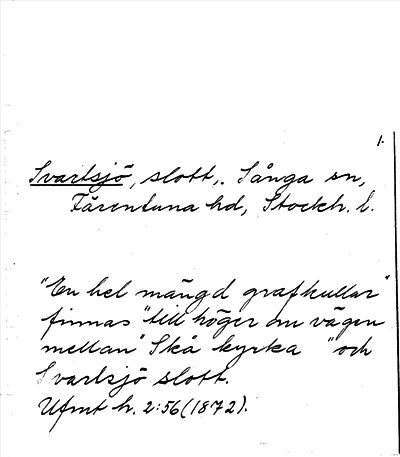 1.
Svartsjö, slott,. Sånga sn,
Färentuna hd, Stockh. l.
"En hel mängd grafkullar"
finnas "till höger om vägen
mellan" Skå kyrka "och
Svartsjö slott.
Ufmt h. 2:56 (1872).